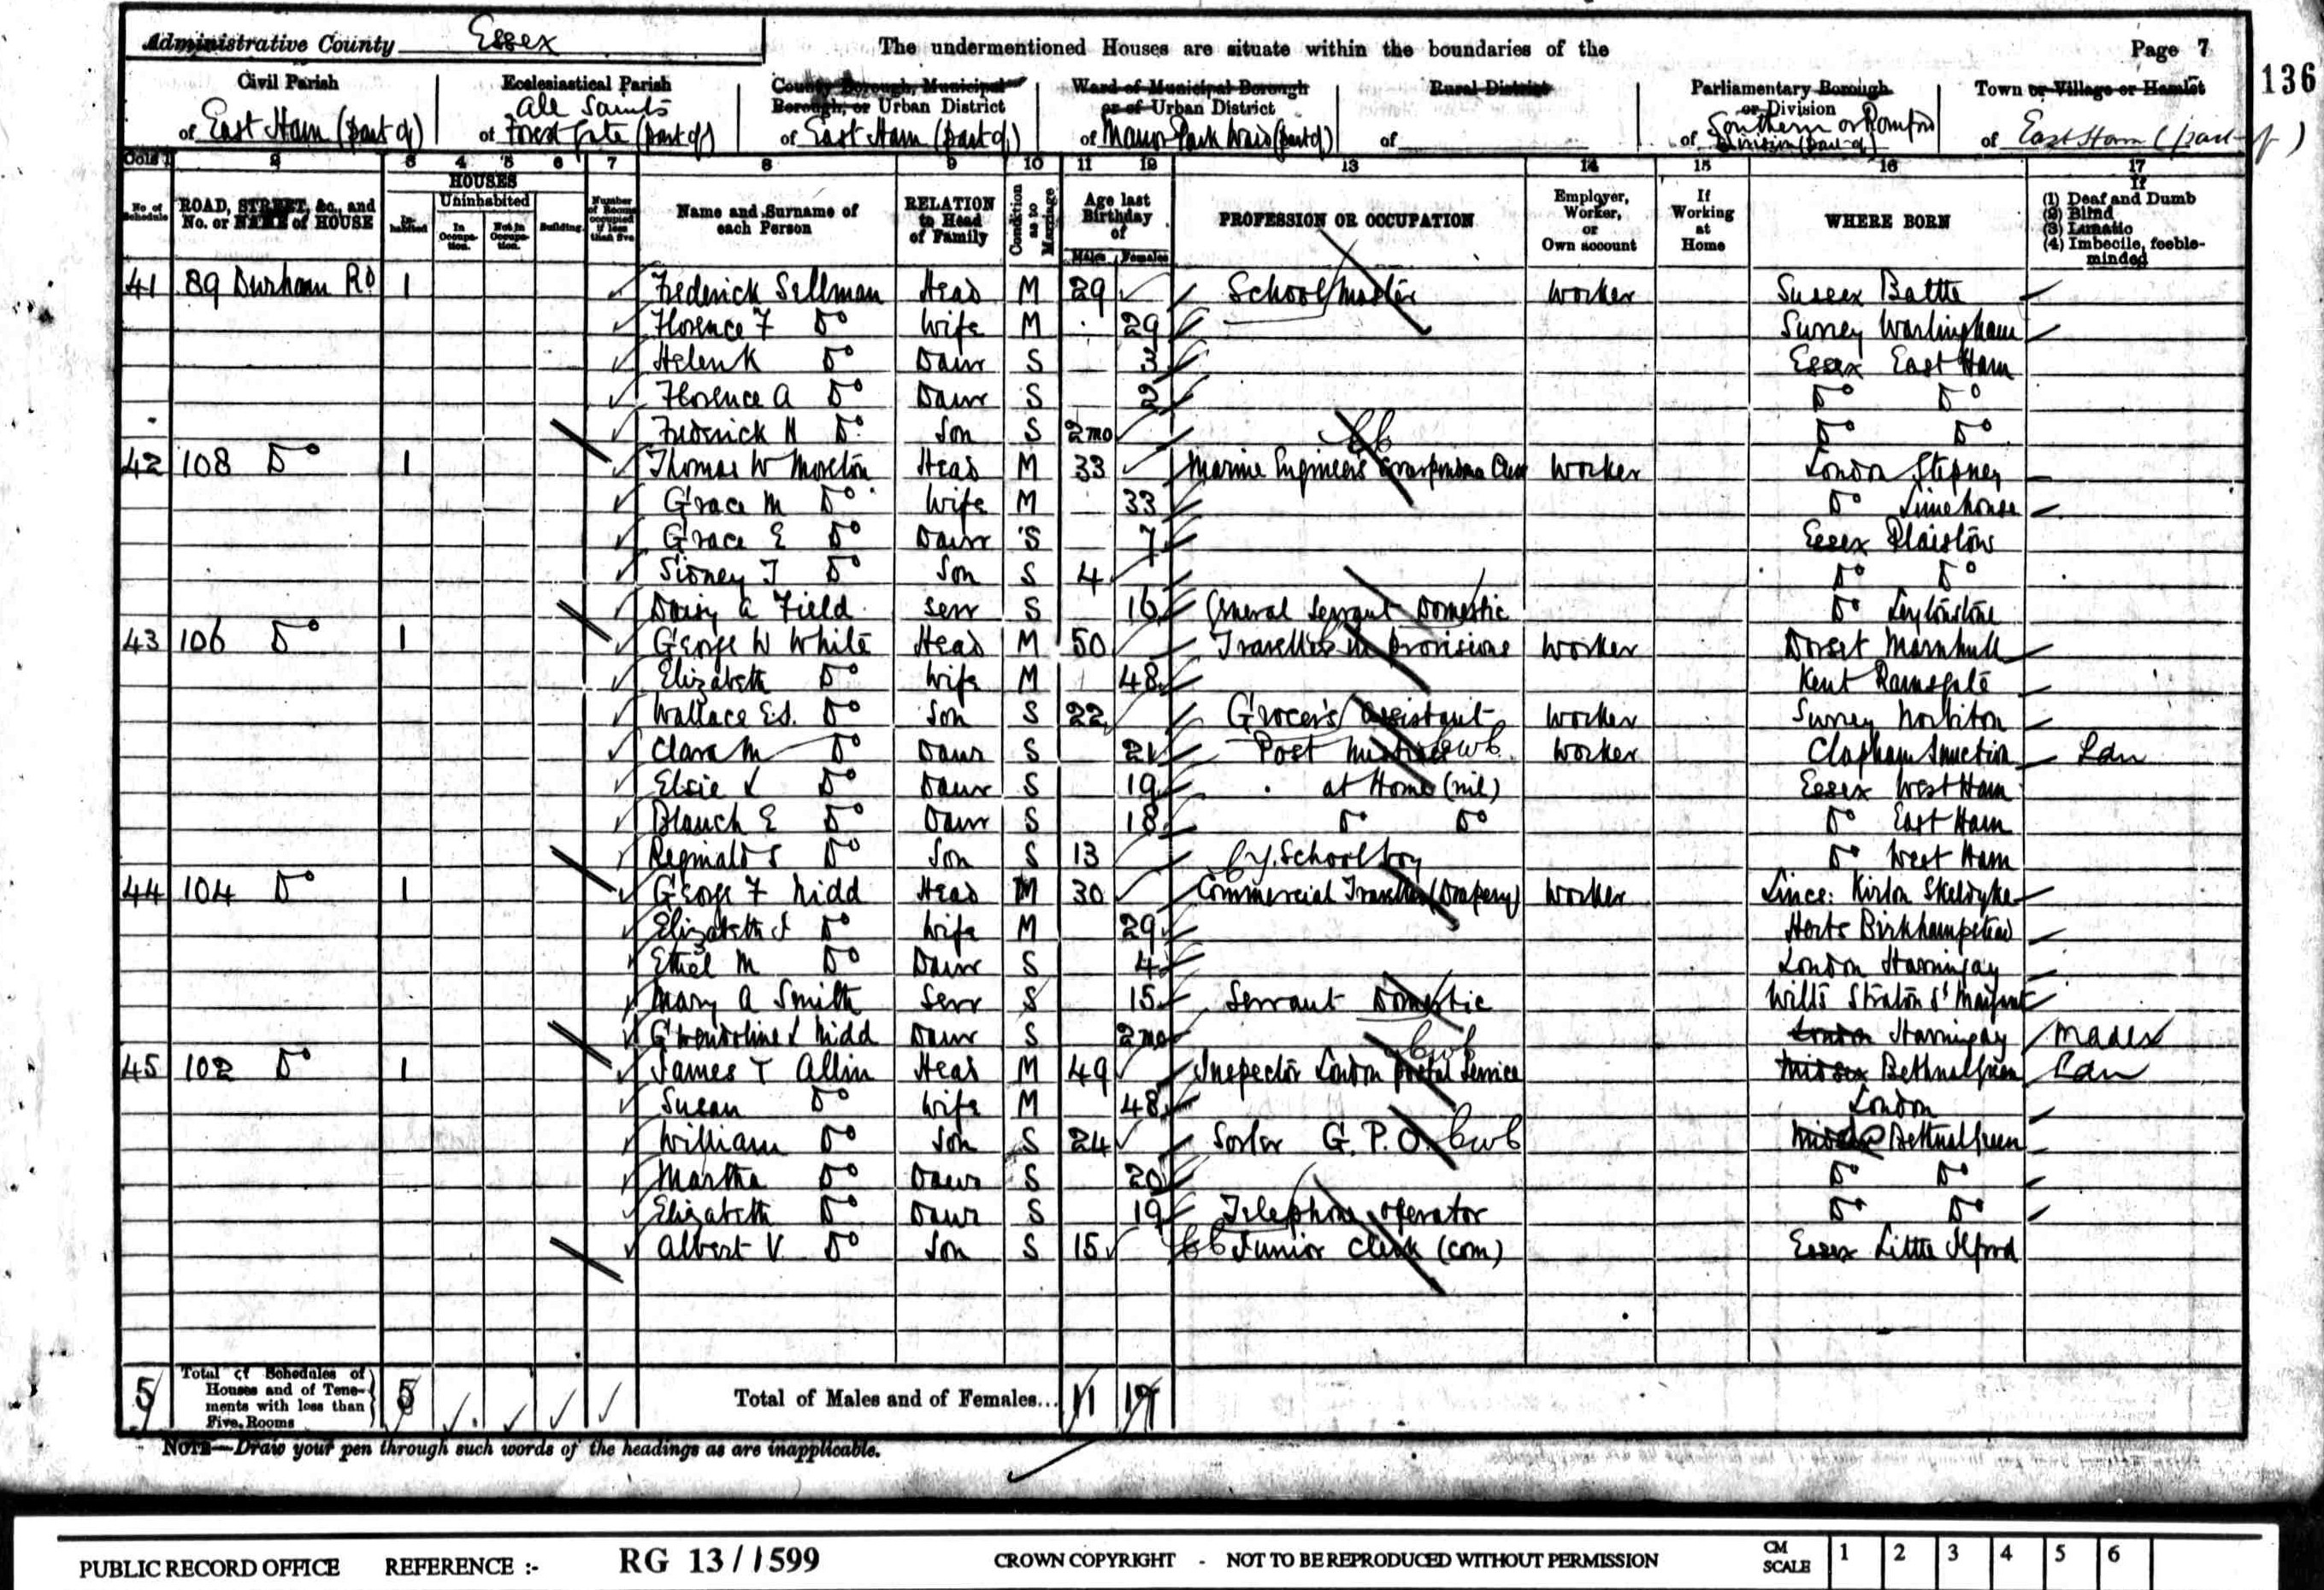 Administrative County Essex
The undermentioned Houses are situate within the boundaries of the
Page 7
136
Civil Parish
of East Ham (part of)
Ecclesiastical Parish
All Saints
of Forest Gate (part of)
County Borough, Municipal
Borough, or Urban District
of East Ham (part of)
Ward of Municipal Borough
or of Urban District
of Manor Park Ward (part of)
Rural District
of
Parliamentary Borough
or Division
of Southern or Romford
Division (part of)
Town or Village or Hamlet
of East Ham (part of)
Cols 1 2 3 4 5 6 7 8 9 10 11 12 13 14 15 16 17
No. of Schedule
ROAD, STREET, &c., and No. or NAME of HOUSE
HOUSES
Inhabited
Uninhabited
In Occupation.
Not in Occupation.
Building.
Number of Rooms occupied if less than five
Name and Surname of each Person
RELATION to Head of Family
Condition as to Marriage
Age last Birthday of
Males Females
PROFESSION OR OCCUPATION
Employer, Worker, or Own account
If Working at Home
WHERE BORN
If
(1) Deaf and Dumb
(2) Blind
(3) Lunatic
(4) Imbecile, feeble-minded
41 89 Durham Rd 1 Frederick Sellman Head M 29 Schoolmaster Worker Sussex Battle
Florence F Do Wife M 29 Surrey Warlingham
Helen K Do Daur S 3 Essex East Ham
Florence A Do Daur S 2 Do Do
Frederick H Do Son S 2mo Do Do
42 108 Do 1 Thomas W Moreton Head M 33 Marine Engineers Worker London Stepney
Grace M Do Wife M 33 Do Limehouse
Grace E Do Daur S 7 Essex Plaistow
Sidney T Do Son S 4 Do Do
Daisy A Field Serv S 16 General Servant Domestic Do Leytonstone
43 106 Do 1 George W White Head M 50 Traveller in provisions Worker Dorset Marnhull
Elizabeth Do Wife M 48 Kent Ramsgate
Wallace Ed. Do Son S 22 Grocer's Assistant Worker Surrey Norbiton
Clara M Do Daur S 21 Post Worker Clapham Junction Ldn
Elsie L Do Daur S 19 at Home (nil) Essex West Ham
Blanch E Do Daur S 18 Do Do Do East Ham
Reginald S Do Son S 13 Schoolboy Do West Ham
44 104 Do 1 George F Nidd Head M 30 Commercial Traveller (Drapery) Worker Lincs: Kirton Skeldyke
Elizabeth J Do Wife M 29 Herts Birkhampstead
Ethel M Do Daur S 4 London Harringay
Mary A Smith Serv S 15 Servant Domestic Wilts Straton St Margaret
Gwendoline L Nidd Daur S 2mo London Harringay Madex
45 102 Do 1 James T Allin Head M 49 Inspector London Postal Service Midsex Bethnal Green Ldn
Susan Do Wife M 48 London
William Do Son S 24 Sorter G.P.O. Bethnal Green
Martha Do Daur S 20 Do Do
Elizabeth Do Daur S 19 Telephone operator Do Do
Albert V. Do Son S 15 Junior Clerk (com) Essex Little Ilford
5 Total of Schedules of Houses and of Tenements with less than Five Rooms 5 Total of Males and of Females... 11 17
NOTE—Draw your pen through such words of the headings as are inapplicable.
PUBLIC RECORD OFFICE REFERENCE :- RG 13/1599 CROWN COPYRIGHT - NOT TO BE REPRODUCED WITHOUT PERMISSION CM SCALE 1 2 3 4 5 6